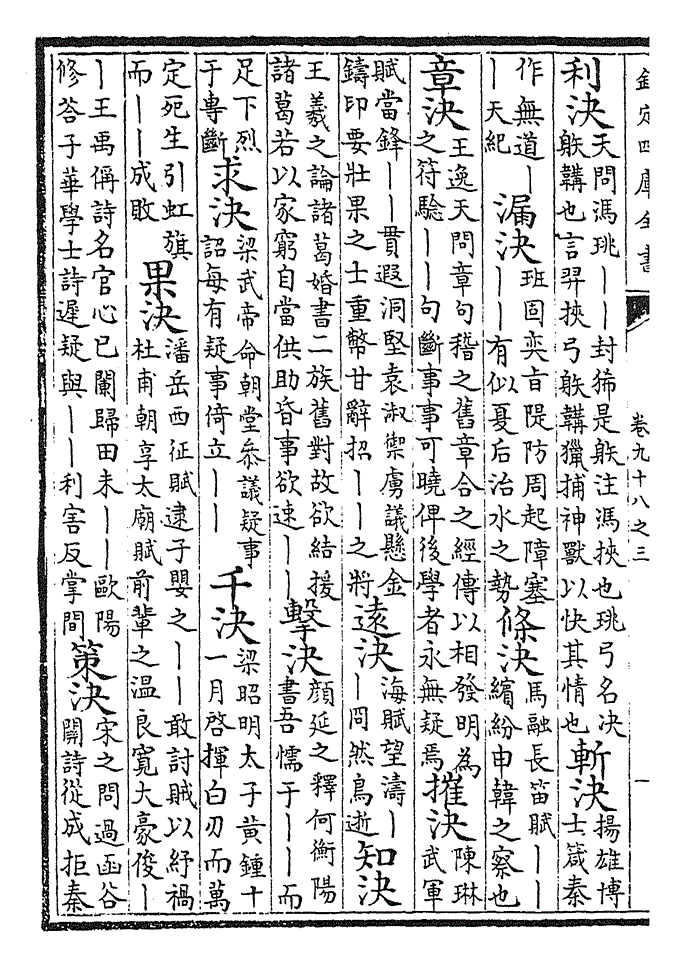 欽定四庫全書
卷九十八之三
一
利決
天問馮珧丨丨封狶是䠶注馮挾也珧弓名决
䠶韝也言羿挾弓䠶韝獵捕神獸以快其情也
斬決
揚雄博
士箴秦
作無道丨
丨天紀
漏決
班固奕旨隄防周起障塞
丨丨有似夏后治水之勢
條決
馬融長笛賦丨丨
繽紛申韓之察也
章決
王逸天問章句稽之舊章合之經傳以相發明為
之符驗丨丨句斷事事可曉俾後學者永無疑焉
摧決
陳琳
武軍
賦當鋒丨丨貫遐洞堅袁淑禦虜議懸金
鑄印要壯果之士重幣甘辭招丨丨之將
遠決
海賦望濤丨
丨冏然鳥逝
知決
王羲之論諸葛婚書二族舊對故欲結援
諸葛若以家窮自當供助昏事欲速丨丨
擊決
顔延之釋何衡陽
書吾懦于丨丨而
足下烈
于專斷
求決
梁武帝命朝堂叅議疑事
詔每有疑事倚立丨丨
千決
梁昭明太子黄鍾十
一月啓揮白刃而萬
定死生引虹旗
而丨丨成敗
果決
潘岳西征賦逮子嬰之丨丨敢討賊以紓禍
杜甫朝享太廟賦前輩之温良寛大豪俊丨
丨王禹偁詩名官心已闌歸田未丨丨歐陽
修荅子華學士詩遲疑與丨丨利害反掌間
策決
宋之問過函谷
關詩從成拒秦